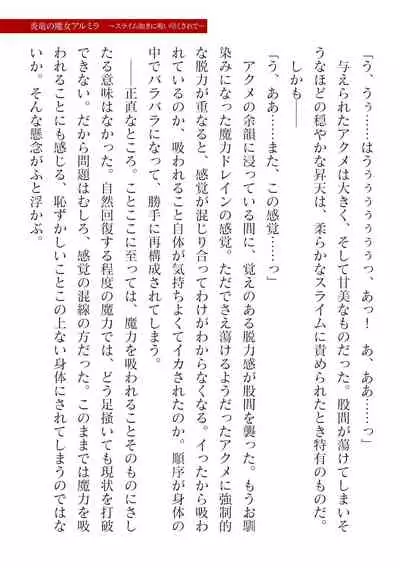 炎竜の魔女アルミラ　～スライム如きに吸い尽くされて～
「う、うぅ……はうぅぅぅぅぅぅっ、あっ！　あ、ああ……っ」
　与えられたアクメは大きく、そして甘美なものだった。股間が蕩けてしまいそ
うなほどの穏やかな昇天は、柔らかなスライムに責められたとき特有のものだ。
　しかも――
「う、ああ……また、この感覚……っ」
　アクメの余韻に浸っている間に、覚えのある脱力感が股間を襲った。もうお馴
染みになった魔力ドレインの感覚。ただでさえ蕩けるようだったアクメに強制的
な脱力が重なると、感覚が混じり合ってわけがわからなくなる。イったから吸わ
れているのか、吸われること自体が気持ちよくてイカされたのか。順序が身体の
中でバラバラになって、勝手に再構成されてしまう。
　――正直なところ。ことここに至っては、魔力を吸われることそのものにさし
たる意味はなかった。自然回復する程度の魔力では、どう足掻いても現状を打破
できない。だから問題はむしろ、感覚の混線の方だった。このままでは魔力を吸
われることにも感じる、恥ずかしいことこの上ない身体にされてしまうのではな
いか。そんな懸念がふと浮かぶ。